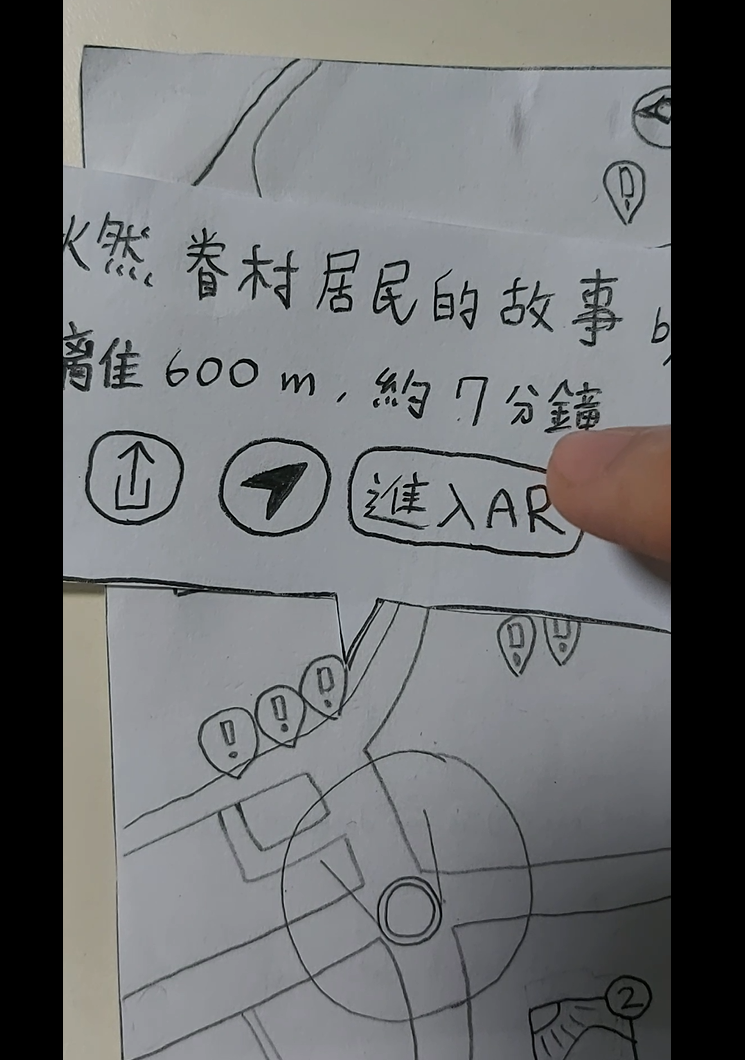 然 眷村居民的故事 b
離隹 600 m, 約 7 分鐘
進入AR
!
!
!
!
!
!
2